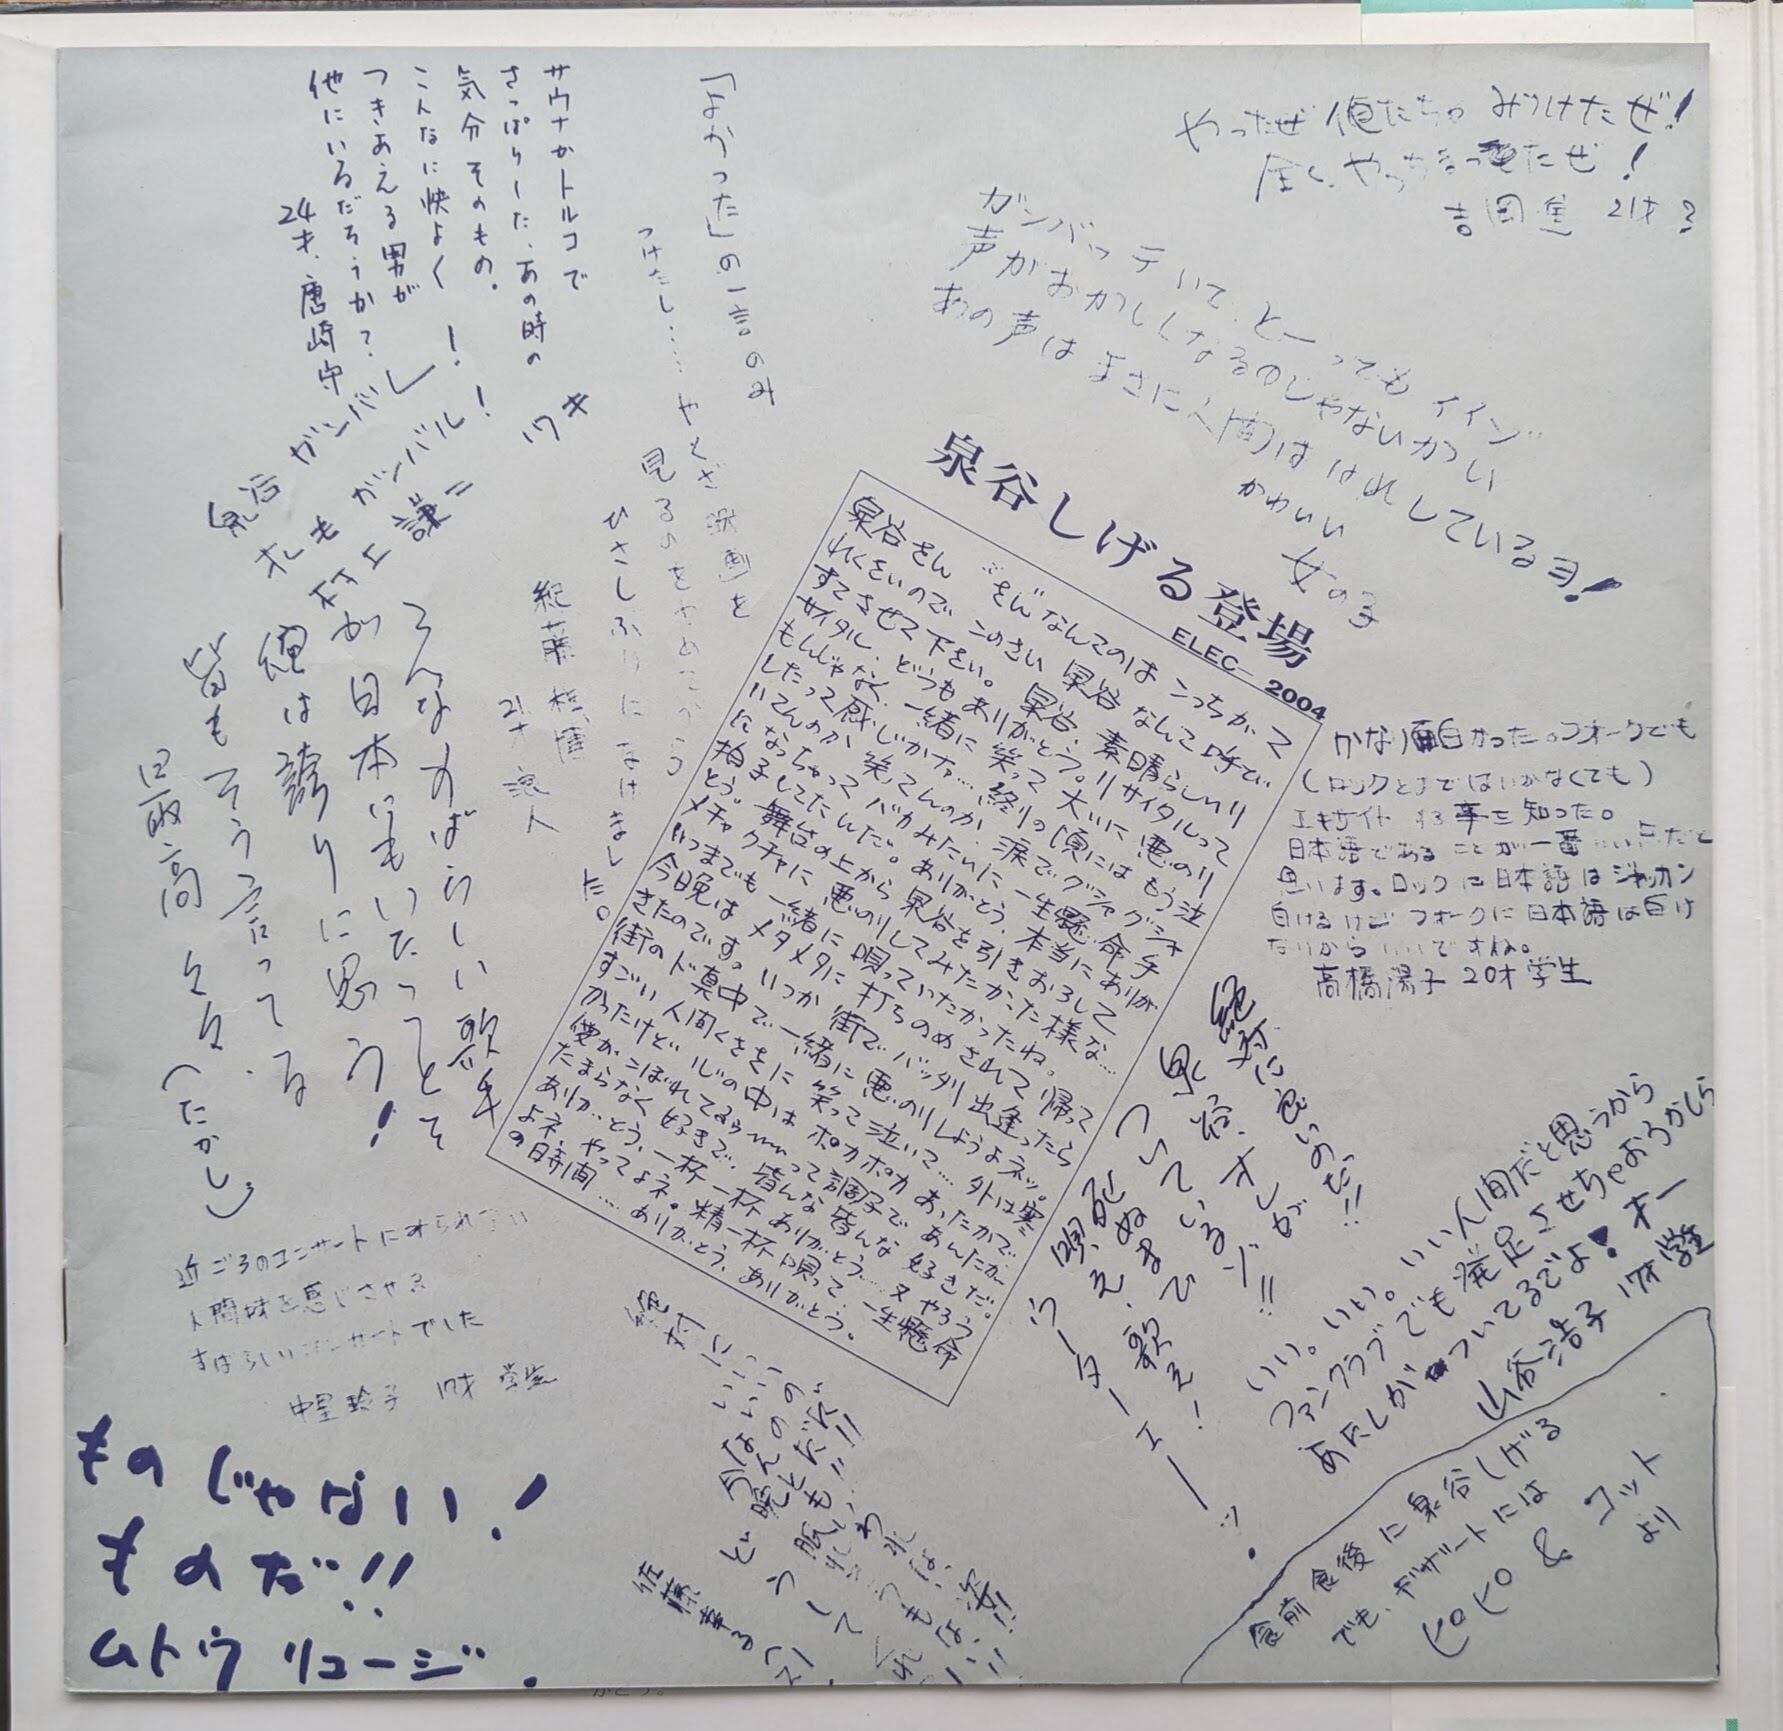 サウナかトルコで
さっぱりした、あの時の
気分そのもの。
こんなに快よく
つきあえる男が
他にいるだろうか？
24才、唐崎守
「よかった」の一言のみ
つけたし……やくざ映画を
見るのをやめて
ひさしぶりに
21才 浪人
やったぜ 俺たちゃ みつけたぜ！
吉岡 21才？
ガンバッテいて、とーってもイイゾ
声がおかしくなるのじゃないかい
あの声はまさに人間ばなれしているヨ！
かわいい女の子
泉谷 ガンバレ！
オレも ガンバル！
村上 謙一
こんなすばらしい歌手
が日本にもいたってこそ
俺は誇りに思う！
皆もそう言ってる
最高 々々（たかし）
泉谷しげる登場
ELEC—2004
泉谷さん “さん”なんてのは こっちがて
れくさいので このさい 泉谷 なんて呼び
すてさせて下さい。 泉谷、素晴らしいリ
サイタル、どうもありがとう。リサイタルって
もんじゃなく、一緒に 笑って 大いに 悪のり
したって感じかナ… 終りの頃には もう泣
いてんのか 笑ってんのか、涙でグシャグシャ
になっちゃって バカみたいに 一生懸命 手
拍子してたんだ。ありがとう、本当に ありが
とう。舞台の上から 泉谷を引きおろして
メチャクチャに 悪のりしてみたかった様な…
いつまでも 一緒に 唄っていたかったね。帰って
今晩は メタメタに 打ちのめされて
きたのです。いつか 街で バッタリ 出逢ったら
街のド真中で 一緒に 悪のりしようよネッ。
すごい 人間くささに 笑って 泣いて… 外は寒
かったけど 心の中は ポカポカ あったかで
優がこぼれてるぅって調子で、あんたが
たまらなく 好きで、皆んな 皆んな 好きだ。
ありがとう、一杯 一杯 ありがとう…又 やろう
よネ、やってよネ。精一杯 唄って、一生懸命
の時間… ありがとう、ありがとう。
かなり面白かった。フォークでも
（ロックとまではいかなくても）
エキサイト する事を知った。
日本語であることが一番いい点だと
思います。ロックに日本語はジャッカン
白けるけど フォークに日本語は白け
ないからいいですね。
高橋陽子 20才 学生
絶対に良いのだ!!
泉谷、オレが
ついているゾ!!
死ぬまで
唄え、歌え！
ワーターエーーッ。
いい。いい。いい人間だと思うから
ファンクラブでも発足させちゃおうかしら
あたしがついてるでよ！オー
山谷浩子 17才 学生
食前食後に泉谷しげる
でも、デザートには
ピピ＆コット
より
近ごろのコンサートに
人間味を感じさせる
すばらしいコンサートでした
中里玲子 17才 学生
ものじゃない！
ものだ!!
ムトウ リュージ．